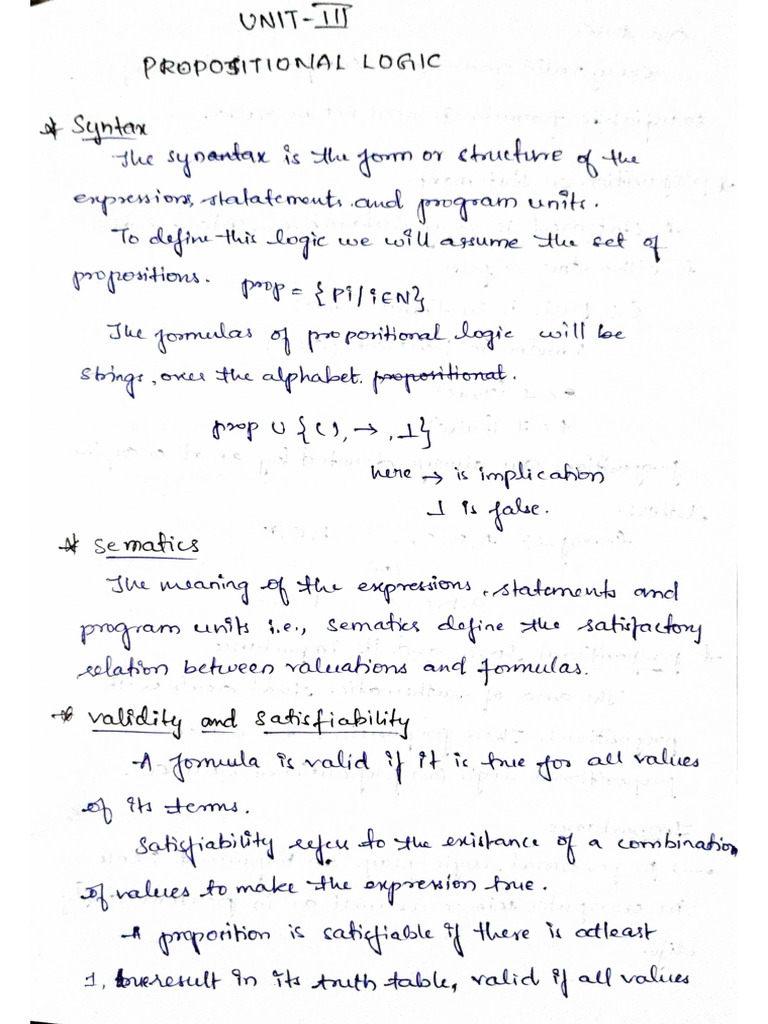 UNIT-III
PROPOSITIONAL LOGIC
* Syntax
The synantax is the form or structure of the
expressions, statatements and program units.
To define this logic we will assume the set of
propositions. prop = {Pi/i∈N}
The formulas of propositional logic will be
strings, over the alphabet. propositional.
prop ∪ {(), →, ⊥}
here → is implication
⊥ is false.
* Sematics
The meaning of the expressions, statements and
program units i.e., sematics define the satisfactory
relation between valuations and formulas.
* validity and satisfiability
A formula is valid if it is true for all values
of its terms.
Satisfiability refers to the existance of a combination
of values to make the expression true.
A proposition is satisfiable if there is atleast
1, true result in its truth table, valid if all values